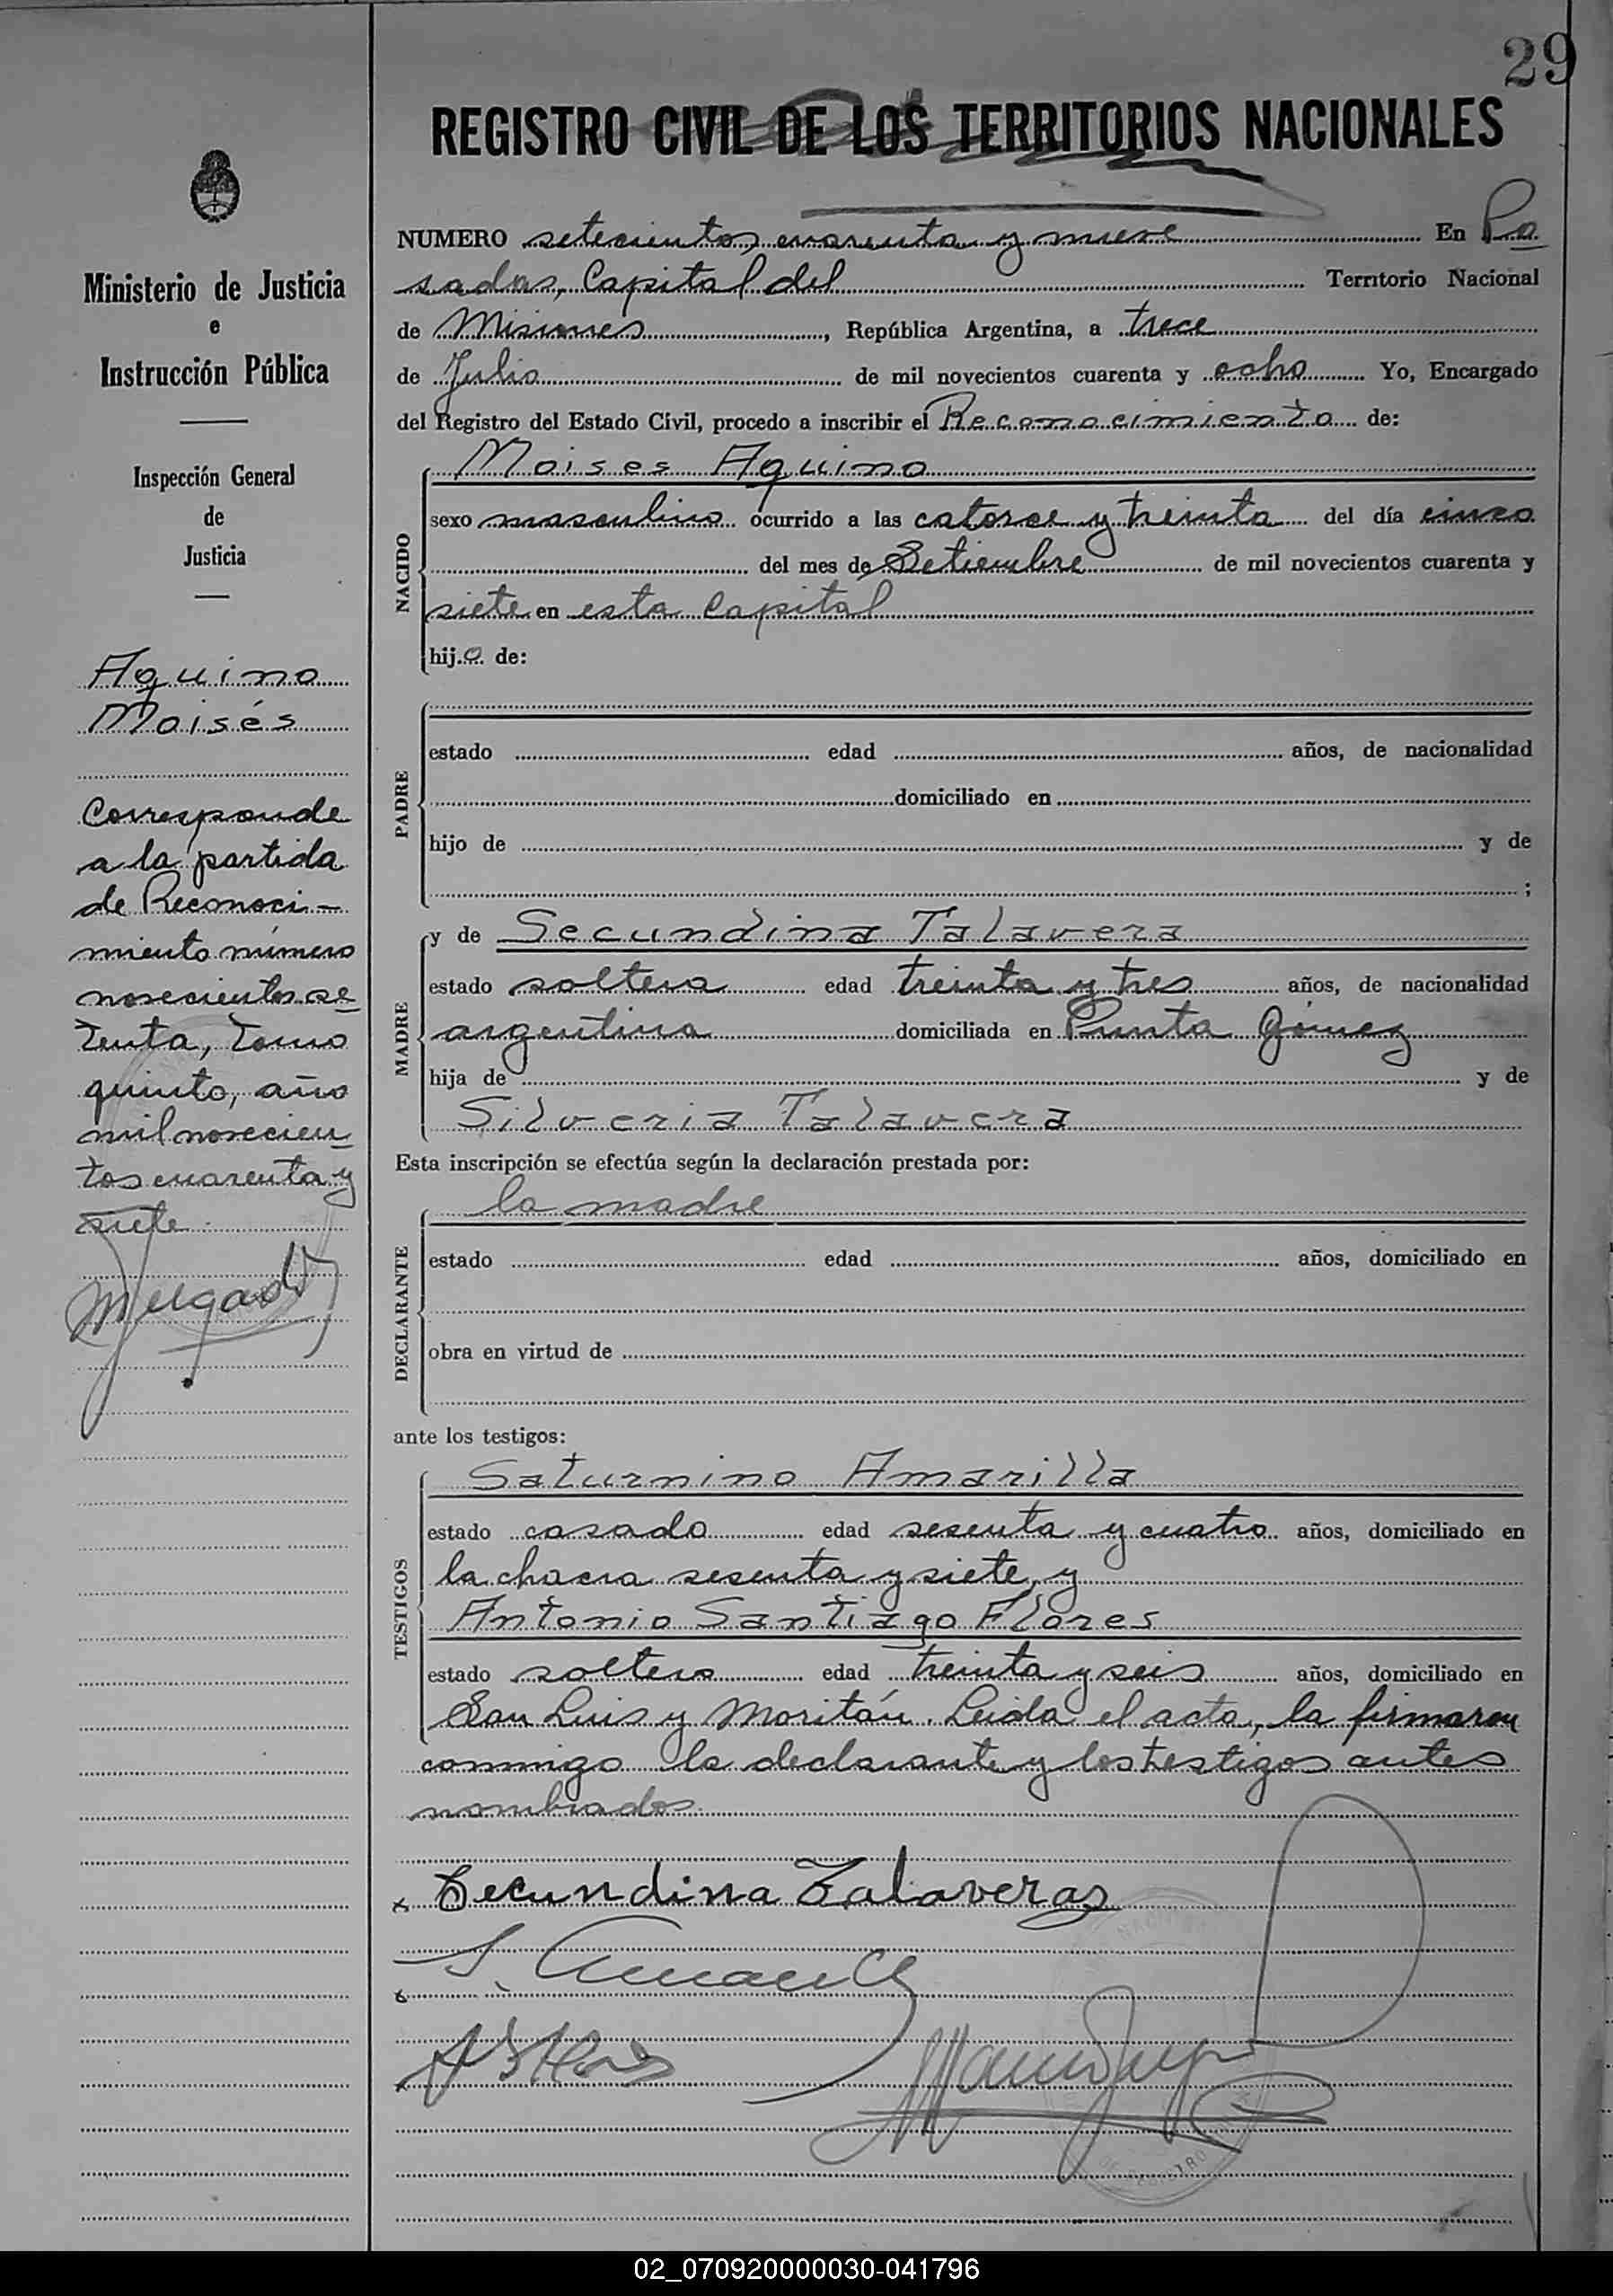 29
REGISTRO CIVIL DE LOS TERRITORIOS NACIONALES
NUMERO setecientos cuarenta y nueve En Po
sadas, Capital del Territorio Nacional
de Misiones, República Argentina, a trece
de Julio de mil novecientos cuarenta y ocho Yo, Encargado
del Registro del Estado Civil, procedo a inscribir el Reconocimiento de:
NACIDO
Moises Aquino
sexo masculino ocurrido a las catorce y treinta del día cinco
del mes de Setiembre de mil novecientos cuarenta y
siete en esta Capital
hijo de:
PADRE
estado edad años, de nacionalidad
domiciliado en
hijo de y de
;
MADRE
y de Secundina Talavera
estado soltera edad treinta y tres años, de nacionalidad
argentina domiciliada en Punta Gómez
hija de y de
Silveria Talavera
Esta inscripción se efectúa según la declaración prestada por:
DECLARANTE
la madre
estado edad años, domiciliado en
obra en virtud de
ante los testigos:
TESTIGOS
Saturnino Amarilla
estado casado edad sesenta y cuatro años, domiciliado en
la chacra sesenta y siete, y
Antonio Santiago Flores
estado soltero edad treinta y seis años, domiciliado en
San Luis y Moritán. Leida el acta, la firmaron
conmigo la declarante y los testigos antes
nombrados.
x Secundina Talaveras
Ministerio de Justicia
e
Instrucción Pública
Inspección General
de
Justicia
Aquino
Moisés
Corresponde
a la partida
de Reconoci-
miento número
novecientos se
tenta, tomo
quinto, año
mil novecien
tos cuarenta y
siete.
02_070920000030-041796